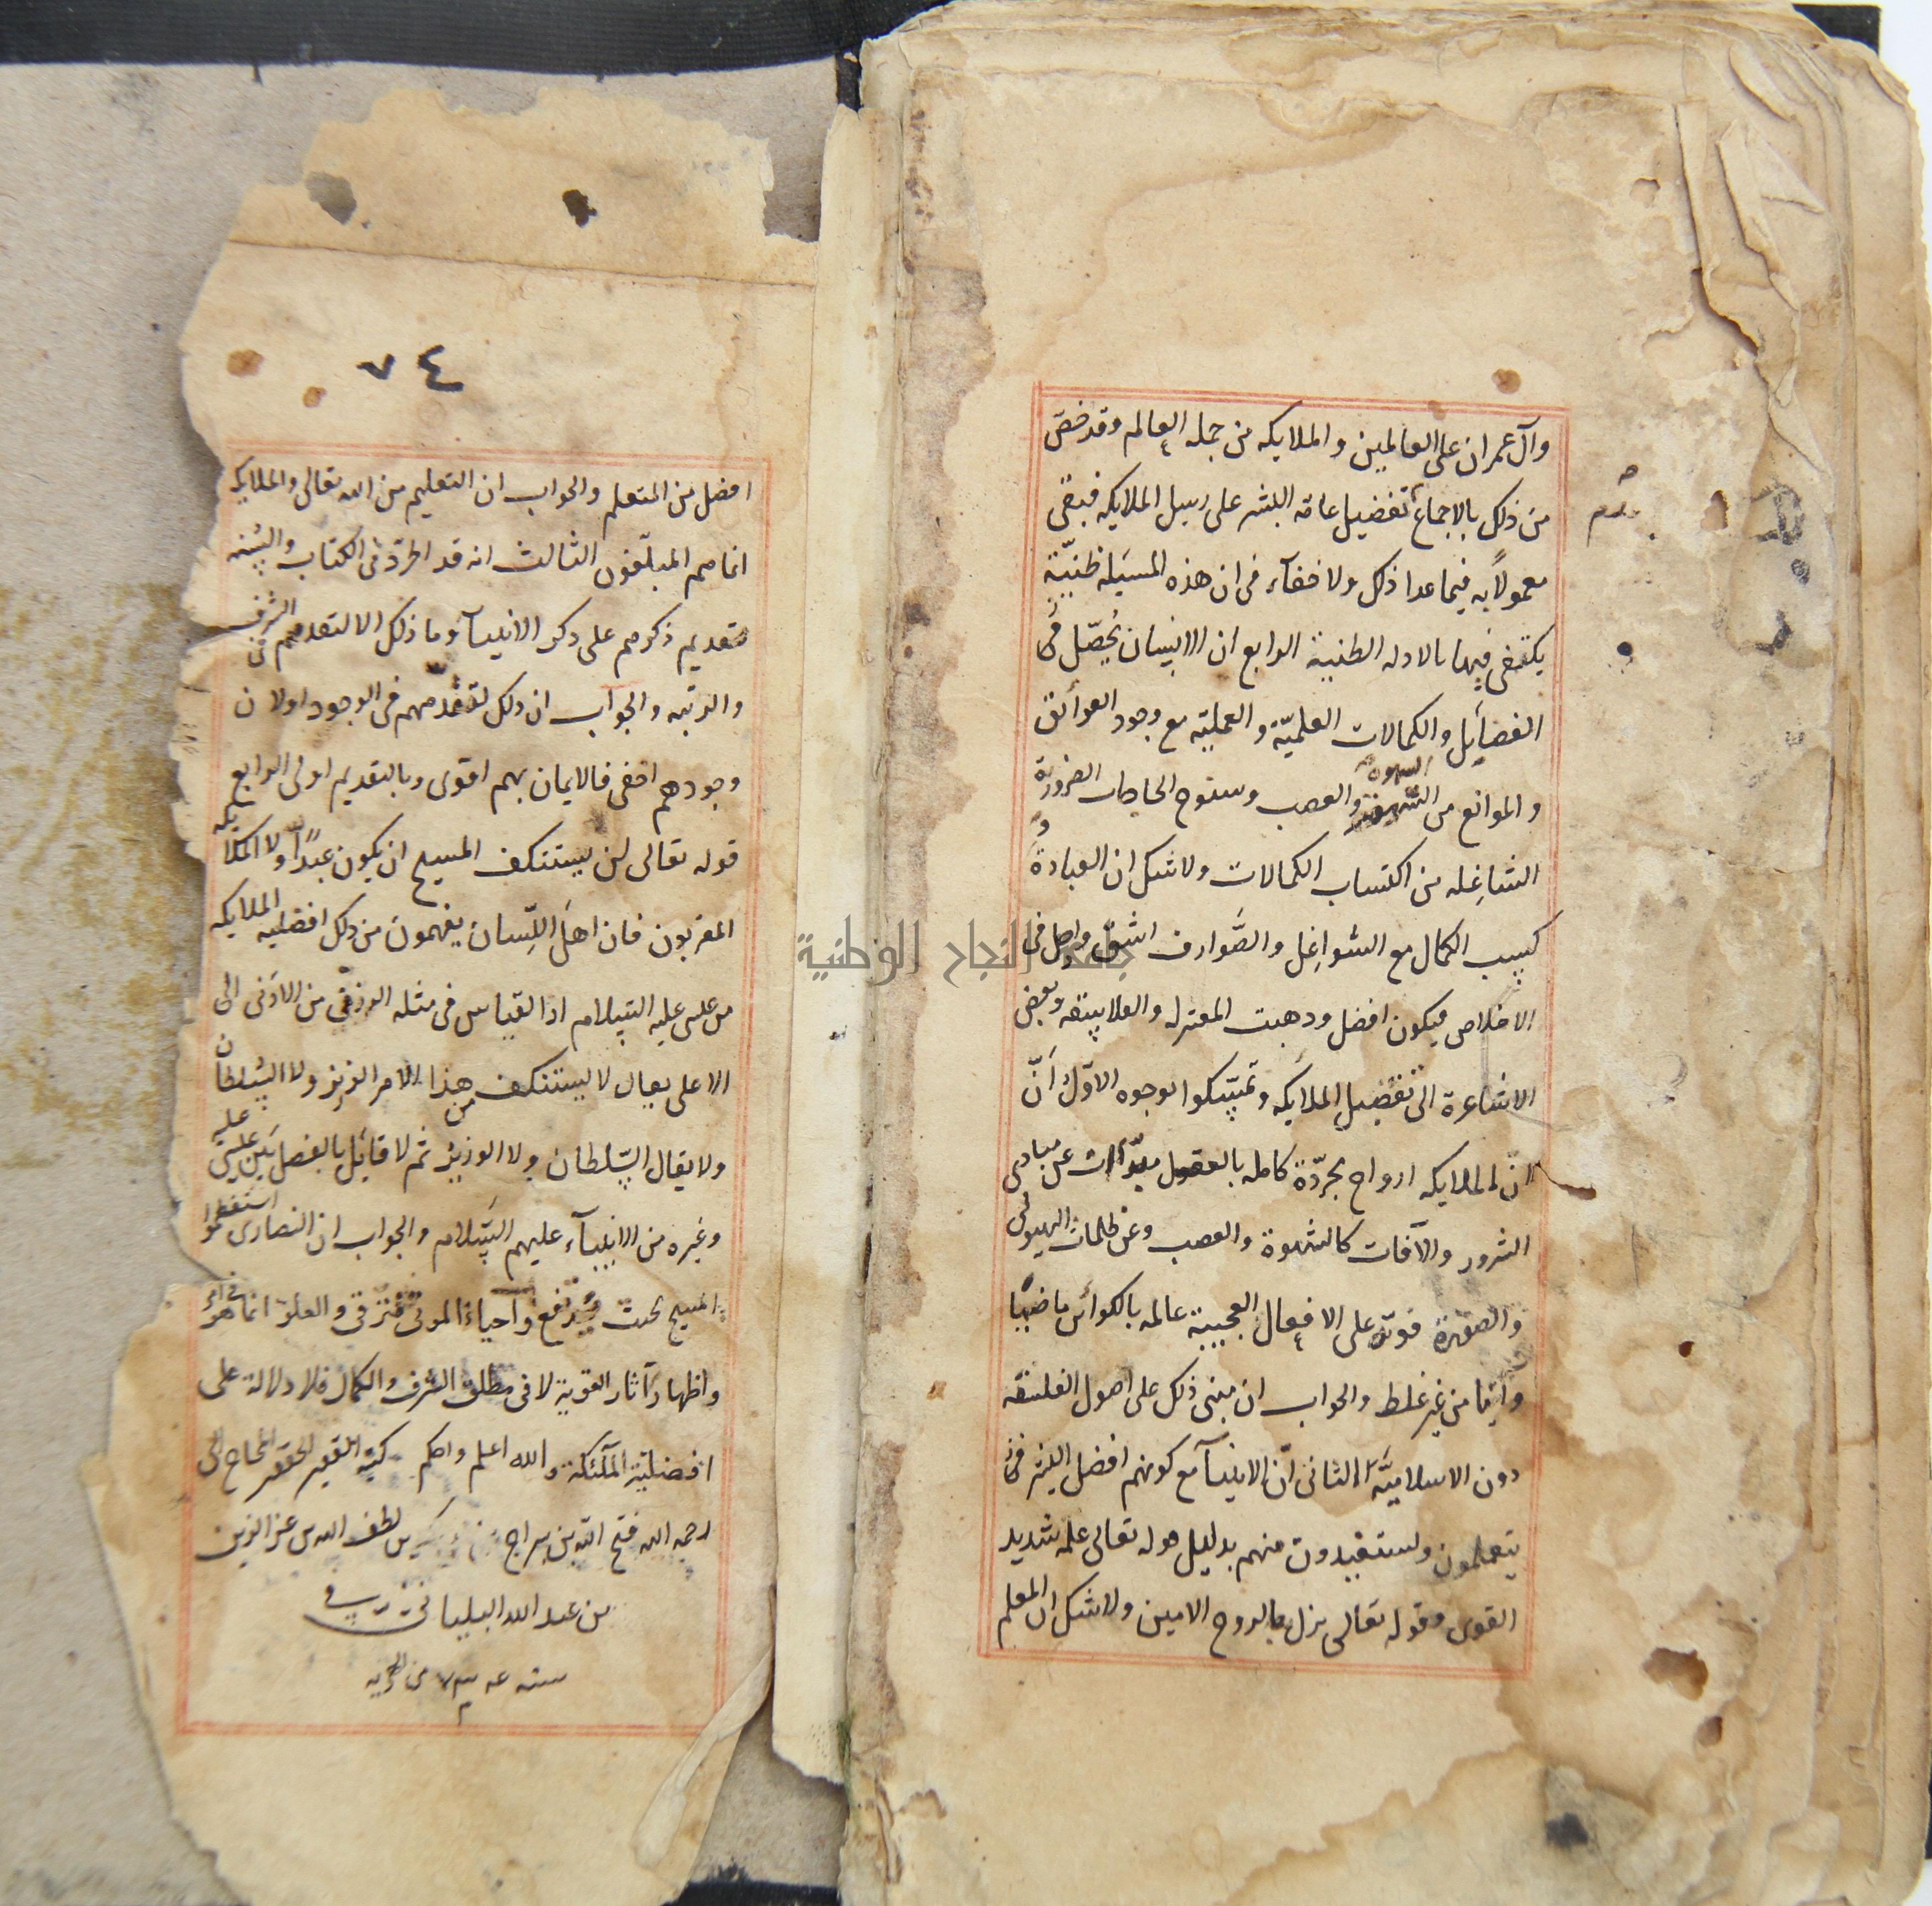 وآل عمران على العالمين والملايكه من جمله العالم وقد خص
من ذلك بالاجماع تفضيل عامه البشر على رسل الملايكه فبقى
معمولاً به فيما عدا ذلك ولا خفآء فى ان هذه المسيله ظنيّة
يكتفى فيها بالادله الظنية الرابع ان الانسان يُحصّل
الفضايل والكمالات العلميّة والعمليّه مع وجود العوائق
والموانع من الشهوة والغضب وسنوح الحاجات الضرورية
الشاغِله من اكتساب الكمالات ولا شك ان العبادة و
كسب الكمال مع الشواغِل والصَّوارف اشق وادخل فى
الاخلاص فيكون افضل وذهبت المعتزله والفلاسفه وبعض
الاشاعرة الى تفضيل الملايكه وتمسّكوا بوجوه الاوّل انّ
الملايكه ارواح مجرّدة كامله بالعقل مبرّآت عن مبادى
الشرور والآفات كالشهوة والغضب وعن ظلمات الهيولى
والصورة قويّة على الافعال العجيبة عالمه بالكوائن ماضيها
وآتيها من غير غلط والجواب ان مبنى ذلك على اصول الفلسفه
دون الاسلاميّة الثانى انّ الانبيآ مع كونهم افضل البشر
يتعلمون ويستفيدون منهم بدليل قوله تعالى علمه شديد
القوى وقوله تعالى نزل به الروح الامين ولا شك ان المعلم
٧٤
افضل من المتعلم والجواب ان التعليم من الله تعالى والملايكه
انما هم المبلّغون الثالث انه قد اطرد فى الكتاب والسُنه
تقديم ذكرهم على ذكر الانبيآء وما ذلك الا لتقدمهم فى الشرف
والرتبه والجواب ان ذلك لتقدمهم فى الوجود او لان
وجودهم اخفى فالايمان بهم اقوى وبالتقديم اولى الرابع
قوله تعالى لن يستنكف المسيح ان يكون عبدًا ولا الملايكه
المقربون فان اهل اللِسان يفهمون من ذلك افضليه الملايكه
من عيسى عليه السلام اذ القياس فى مثله الترقّى من الادنى الى
الاعلى يقال لا يستنكف من هذا الامر الوزير ولا السُلطان
ولا يقال السّلطان ولا الوزير ثم لا قائل بالفصل بين عيسى عليه
وغيره من الانبيآء عليهم السّلام والجواب ان النصارى استعظموا
المسيح بحيث يرتفع واحياء الموتى فترقى والعلو انما هو فى امر
واظهار آثار القوية لا فى مطلق الشرف والكمال فلا دلالة على
افضليّة الملٓئكة والله اعلم واحكم كتبه الفقير الحقير المحتاج الى
رحمة الله فتح الله بن سراج لطف الله بن عز الدين
بن عبد الله البليانى
سنه